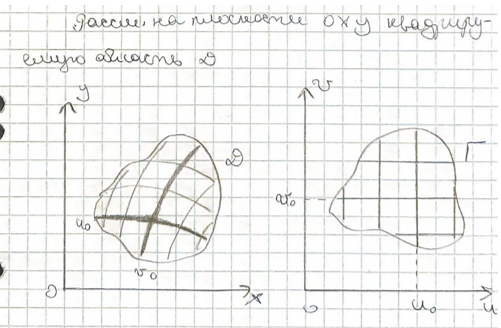 Рассм. на плоскости OXY квадриру-
емую область D
y
v
D
Г
u₀
v₀
v₀
0
x
0
u₀
u